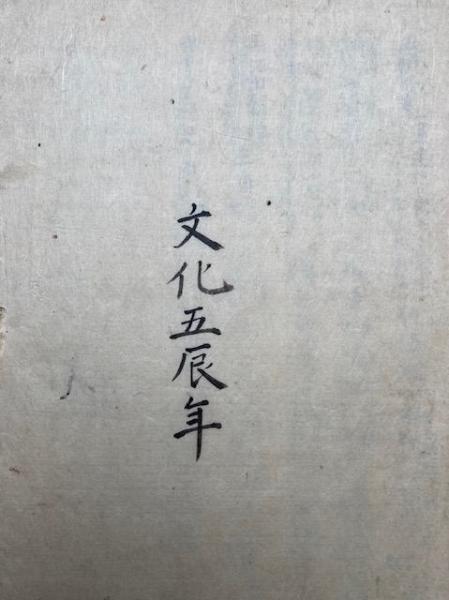 文化五辰年